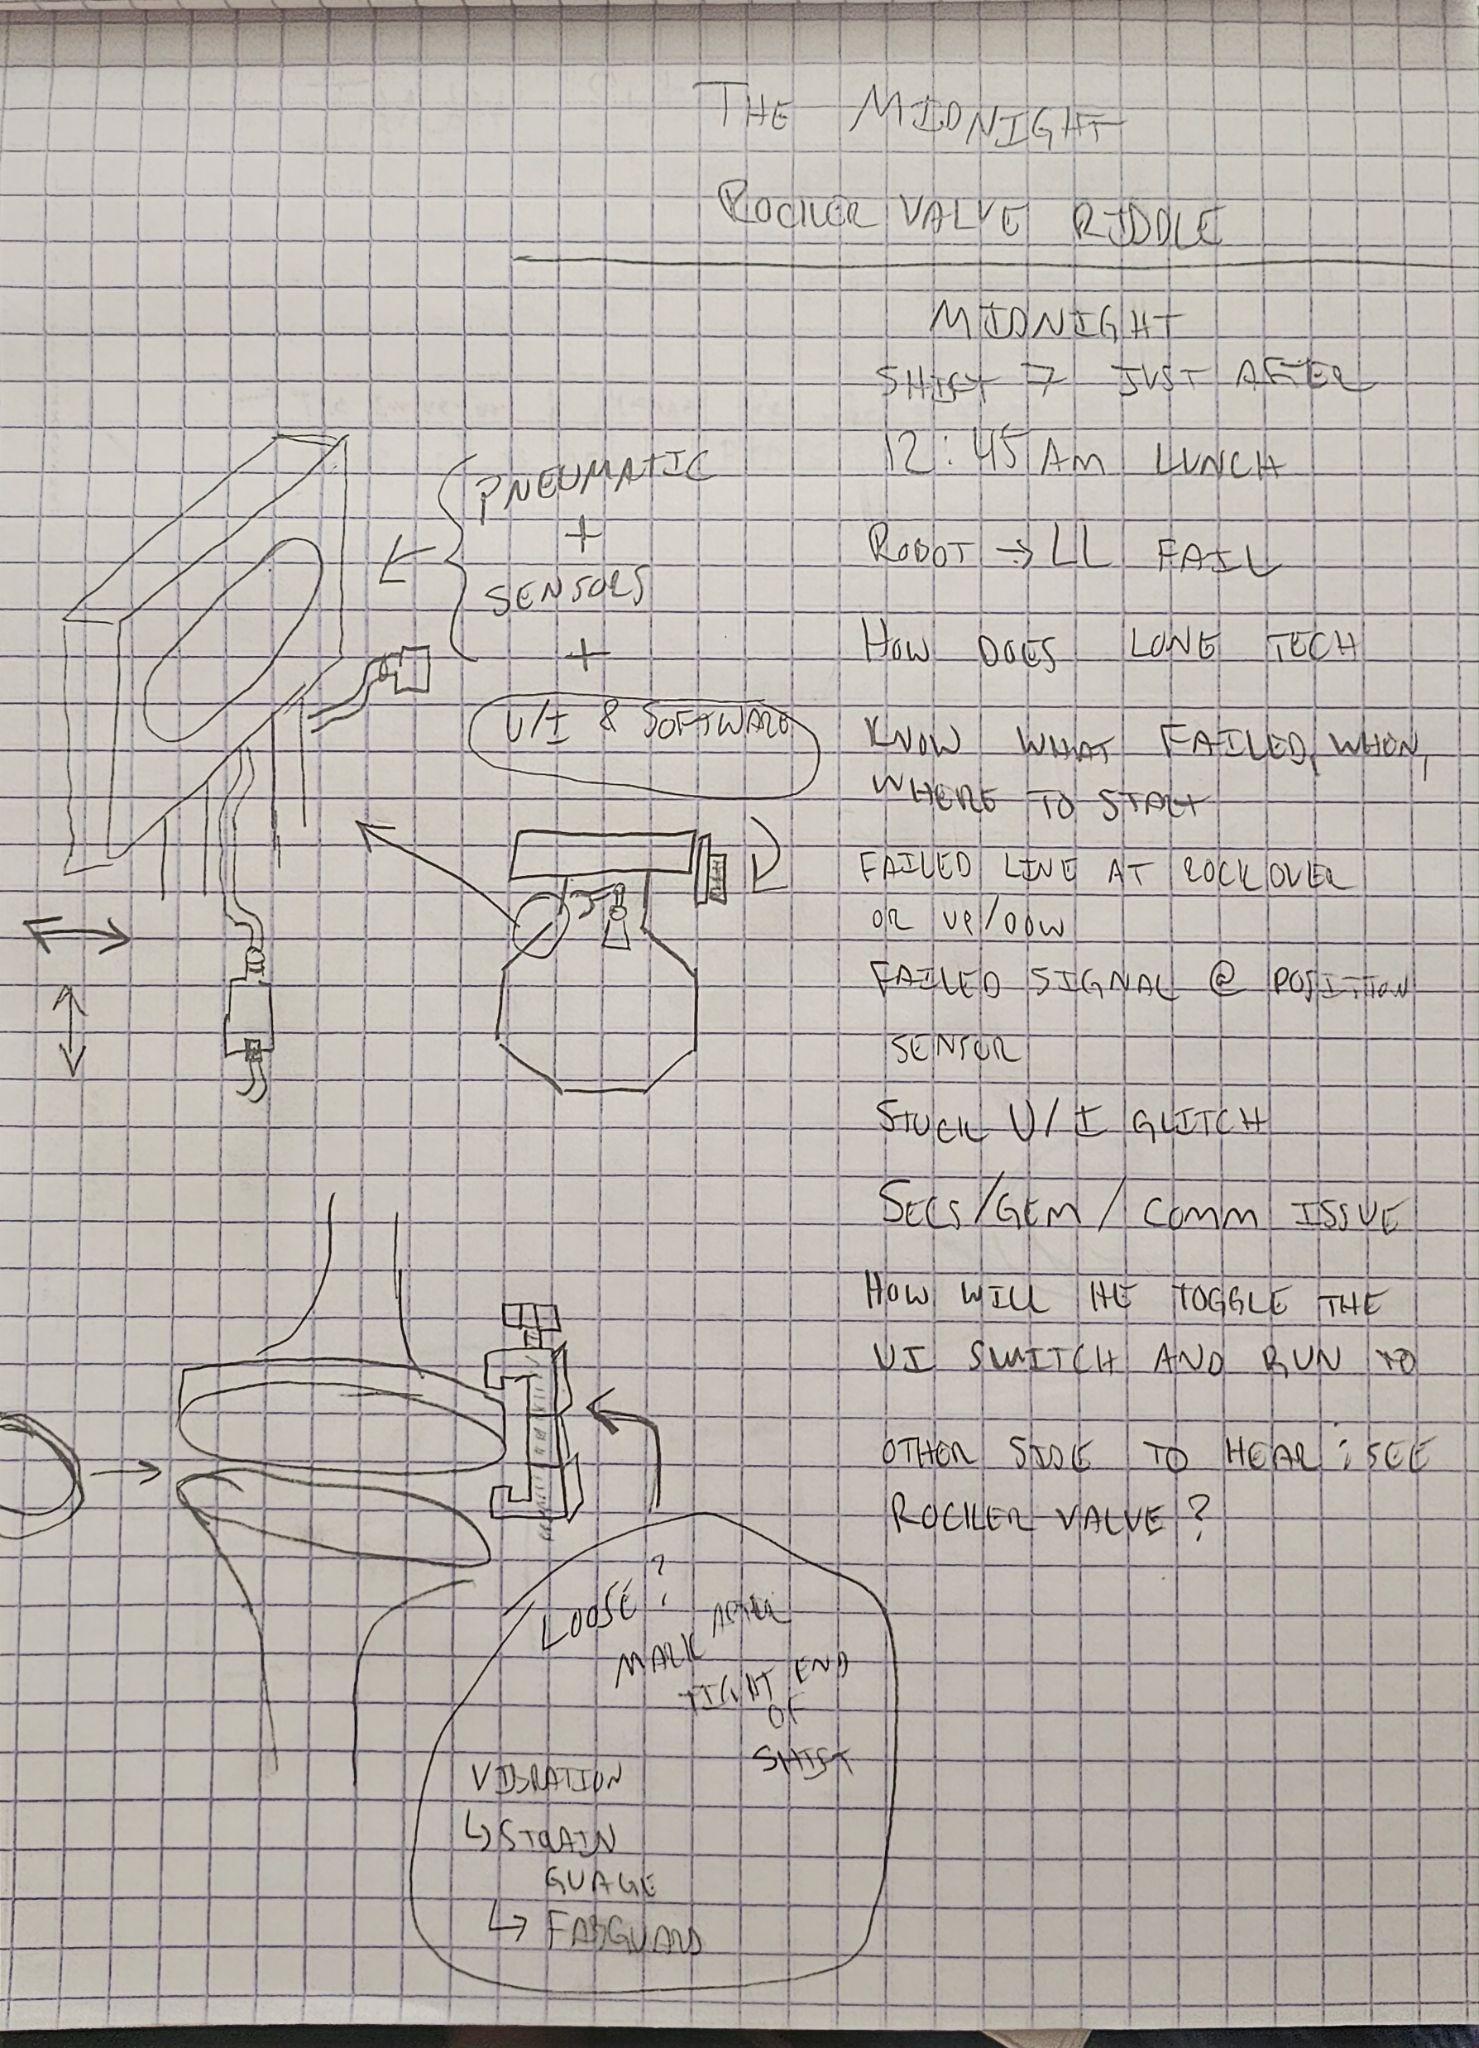 THE MIDNIGHT
ROCKER VALVE RIDDLE
MIDNIGHT
SHIFT 7 JUST AFTER
12:45 AM LUNCH
ROBOT → LL FAIL
HOW DOES LONE TECH
KNOW WHAT FAILED, WHEN,
WHERE TO START
FAILED LINE AT ROCKOVER
OR UP/DOW
FAILED SIGNAL @ POSITION
SENSOR
STUCK U/I GLITCH
SECS/GEM/COMM ISSUE
HOW WILL HE TOGGLE THE
UI SWITCH AND RUN TO
OTHER SIDE TO HEAR ; SEE
ROCKER VALVE?
PNEUMATIC
+
SENSORS
+
U/I & SOFTWARE
LOOSE?
MARK AFTER
TIGHT END
OF
SHIFT
VIBRATION
↳ STRAIN
GUAGE
↳ FABGUARD